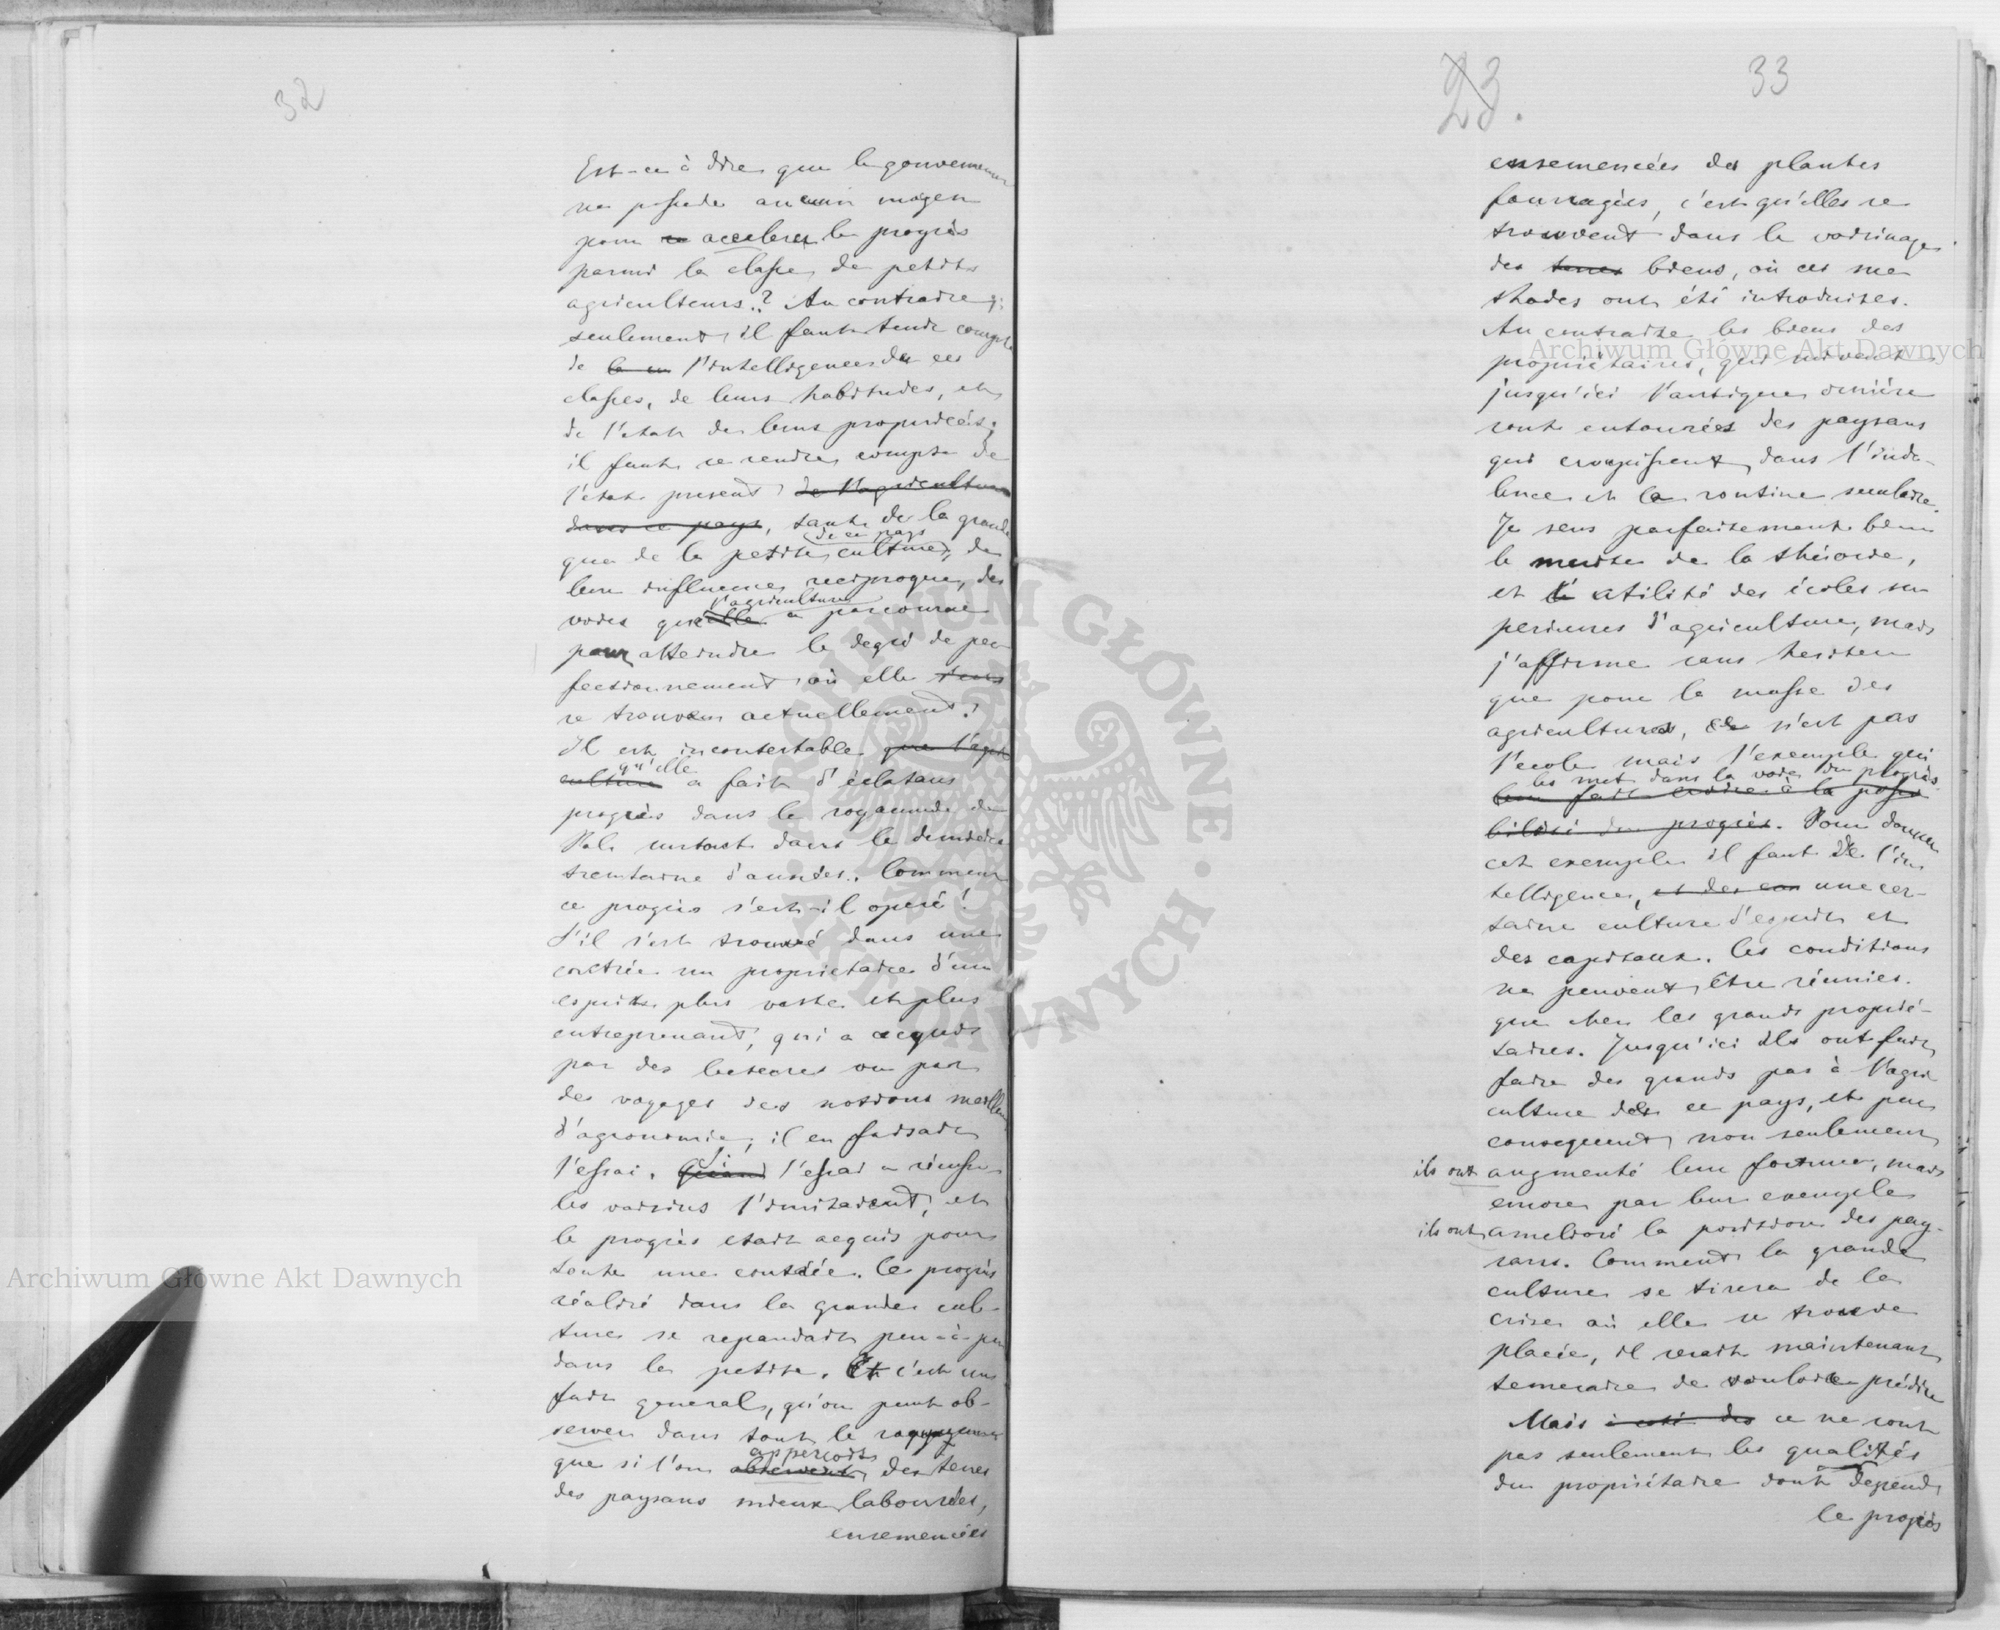 32
Est-ce à dire que le gouvernement
ne possede aucun moyen
pour accelerer le progrès
parmi la classe de petits
agriculteurs? Au contraire;
seulement il faut tenir compte
de l'intelligence de ces
classes, de leurs habitudes, et
de l'etat de leurs proprietés;
il faut se rendre compte de
l'etat present de l'agriculture
dans ce pays, tant de la grande
de ce pays
que de la petite culture, de
leur influence reciproque, des
l'agriculture
voies qu'elle a parcourue
pour atteindre le degré de per
fectionnement où elle
se trouve actuellement?
Il est incontestable que l'agri
qu'elle
culture a fait d'éclatans
progrès dans le royaume de
Pol. surtout dans la derniere
trentaine d'années. Comment
ce progrès s'est-il operé?
S'il s'est trouvé dans une
contrée un proprietaire d'un
esprit plus vaste et plus
entreprenant, qui a acquis
par des lectures ou par
des voyages des notions meilleures
d'agronomie, il en faisait
l'essai. Si l'essai a réussi
les voisins l'imitaient, et
le progrès etait acquis pour
toute une contrée. Ce progrès
réalisé dans la grande cul-
ture se repandait peu-à-peu
dans la petite. Et c'est un
fait general, qu'on peut ob-
server dans tout le royaume
apperçoit
que si l'on observent des terres
des paysans mieux labourées,
ensemencées
23. 33
ensemencées des plantes
fourragées, c'est qu'elles se
trouvent dans le voisinage
des terres biens, où ces me
thodes ont été introduites.
Au contraire les biens des
propriétaires, qui suivent
jusqu'ici l'antique ornière
sont entourées des paysans
qui croupissent dans l'indo-
lence et la routine seculaire.
Je sens parfaitement bien
le merite de la théorie,
et l'utilité des écoles su
perieures d'agriculture, mais
j'affirme sans hesiter
que pour la masse des
agriculteurs, ce n'est pas
l'ecole mais l'exemple qui
les met dans la voie du progrès
leur fait croire à la possi
bilité du progrès. Pour donner
cet exemple il faut de l'in
telligence, et des une cer-
taine culture d'esprit et
des capitaux. Ces conditions
ne peuvent être réunies.
que chez les grands proprié-
taires. Jusqu'ici ils ont fait
faire des grands pas à l'agri
culture de ce pays, et par
consequent non seulement
ils ont augmenté leur fortune, mais
encore par leur exemple
ils ont amelioré la position des pay-
sans. Comment la grande
culture se tirera de la
crise où elle se trouve
placée, il serait maintenant
temeraire de vouloir prédire
Mais à coté des ce ne sont
pas seulement les qualités
du propriétaire dont depend
le progrès
Archiwum Główne Akt Dawnych
Archiwum Główne Akt Dawnych
ARCHIWUM GŁÓWNE · AKT DAWNYCH ·